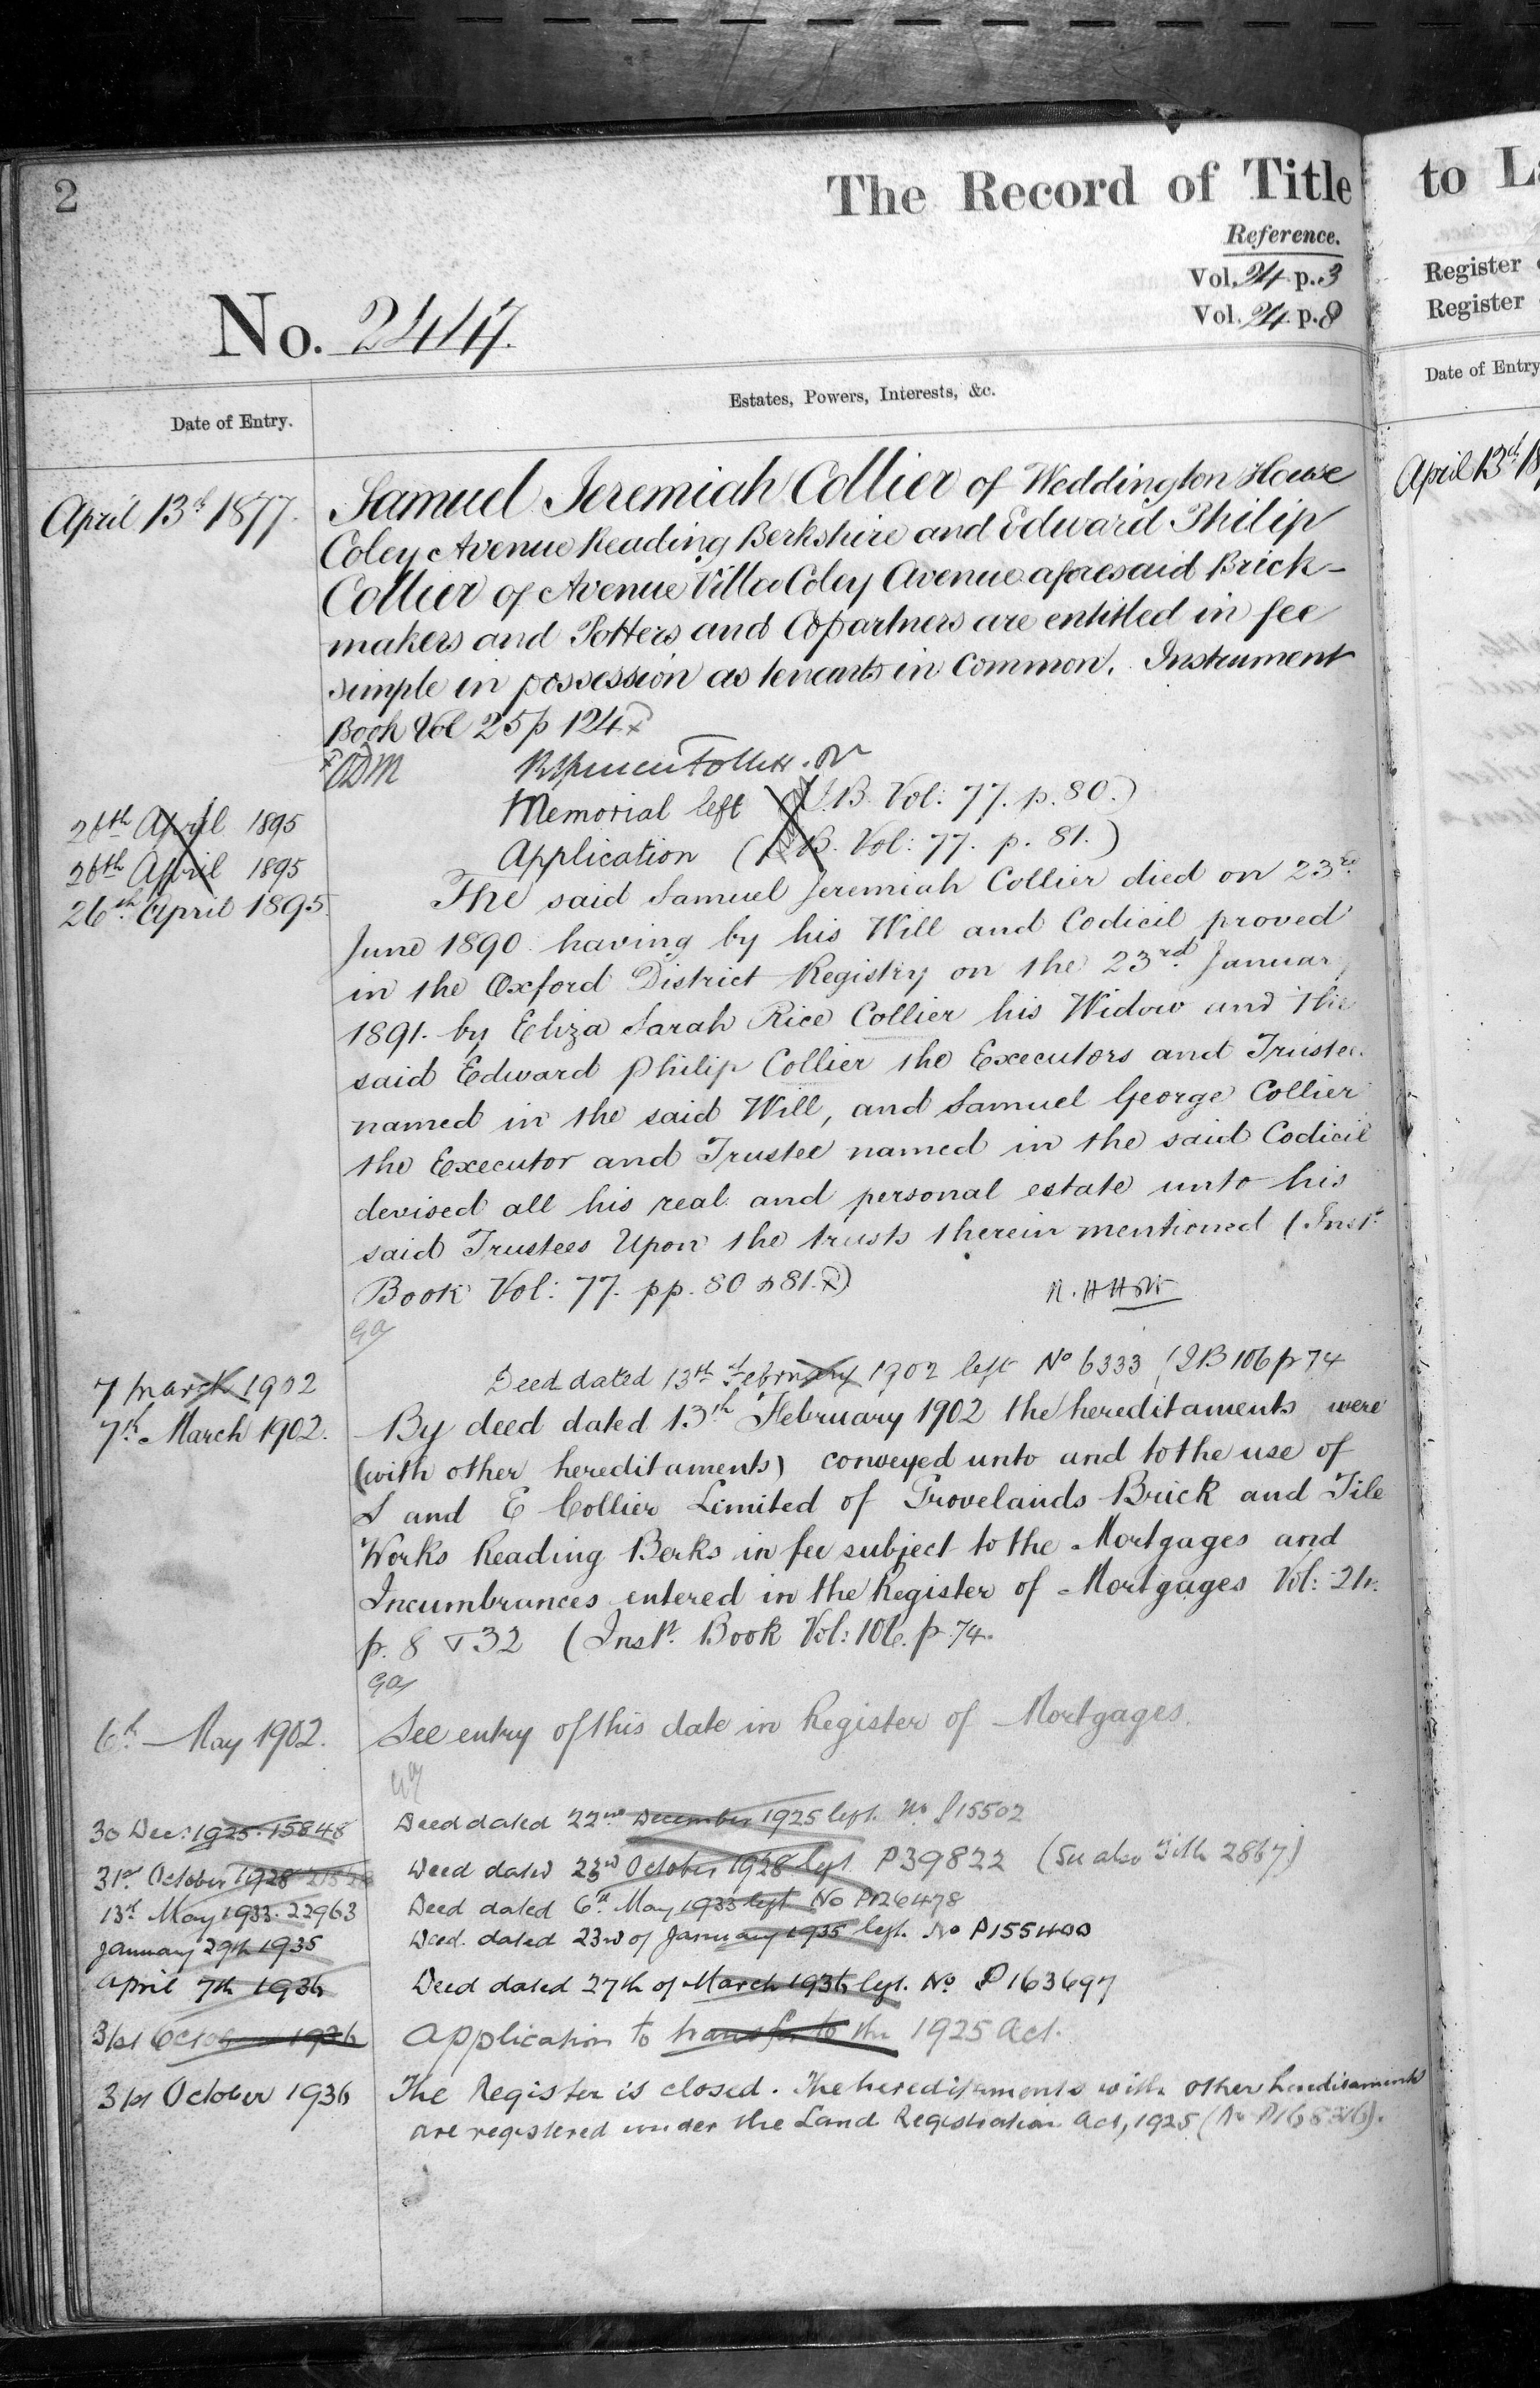 2
The Record of Title
Reference.
Vol. 24 p. 3
Vol. 24 p. 8
No. 2447.
Date of Entry.
Estates, Powers, Interests, &c.
April 13th 1877.
Samuel Jeremiah Collier of Weddington House
Coley Avenue Reading Berkshire and Edward Philip
Collier of Avenue Villa Coley Avenue aforesaid Brick-
makers and Potters and Copartners are entitled in fee
simple in possession as tenants in common. Instrument
Book Vol 25 p 124
26th April 1895
Memorial left (I B. Vol: 77. p. 80.)
26th April 1895
Application (I B. Vol: 77. p. 81.)
26th April 1895.
The said Samuel Jeremiah Collier died on 23rd
June 1890 having by his Will and Codicil proved
in the Oxford District Registry on the 23rd January
1891. by Eliza Sarah Rice Collier his Widow and the
said Edward Philip Collier the Executors and Trustees
named in the said Will, and Samuel George Collier
the Executor and Trustee named in the said Codicil
devised all his real and personal estate unto his
said Trustees Upon the trusts therein mentioned (Inst.
Book Vol: 77. pp. 80 & 81.)
7 March 1902
Deed dated 13th February 1902 left No 6333 (I B 106 p 74
7th March 1902.
By deed dated 13th February 1902 the hereditaments were
(with other hereditaments) conveyed unto and to the use of
S and E Collier Limited of Grovelands Brick and Tile
Works Reading Berks in fee subject to the Mortgages and
Incumbrances entered in the Register of Mortgages Vol: 24.
p. 8 & 32 (Inst. Book Vol: 106. p. 74.
6th May 1902.
See entry of this date in Register of Mortgages.
30 Dec: 1925. 15848
Deed dated 22nd December 1925 left. No P15502
31st October 1928
Deed dated 23rd October 1928 left P39822 (See also Title 2867)
13th May 1933. 22963
Deed dated 6th May 1933 left No P126478
January 29th 1935
Deed dated 23rd of January 1935 left. No P155400
April 7th 1936
Deed dated 27th of March 1936 left. No P163697
31st October 1936
Application to transfer to the 1925 Act.
31st October 1936
The Register is closed. The hereditaments with other hereditaments
are registered under the Land Registration Act, 1925
to L
Register
Register
Date of Entry
April 13th 18